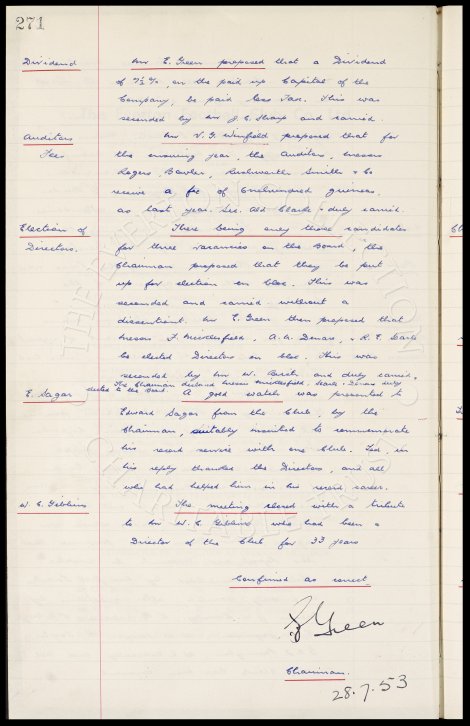 271
Dividend Mr E. Green proposed that a Dividend
of 7½ %, on the paid up Capital of the
Company, be paid less Tax. This was
seconded by Mr J. C. Sharp and carried.
Auditors Mr V. G. Winfield proposed that for
Fees the ensuing year, the Auditors, Messrs
Rogers, Bowler, Rushworth Smith & Co
receive a fee of Onehundred guineas
as last year. Sec. Ald Clark & duly carried.
Election of There being only three candidates
Directors. for three vacancies on the Board, the
Chairman proposed that they be put
up for election en bloc. This was
seconded and carried without a
dissentient. Mr E. Green then proposed that
Messrs F. Micklesfield, A. A. & R. E. Searle
be elected Directors en bloc. This was
seconded by Mr W. and duly carried.
The Chairman declared Messrs Micklesfield, Searle & duly
elected to the Board.
E. Sagar A gold watch was presented to
Edward Sagar from the Club, by the
Chairman, suitably inscribed to commemorate
his record service with one Club. Ted, in
his reply thanked the Directors, and all
who had helped him in his record career.
W. C. Gibbins The meeting closed with a tribute
to Mr W. C. Gibbins who had been a
Director of the Club for 33 years
Confirmed as correct.
E Green
Chairman.
28.7.53